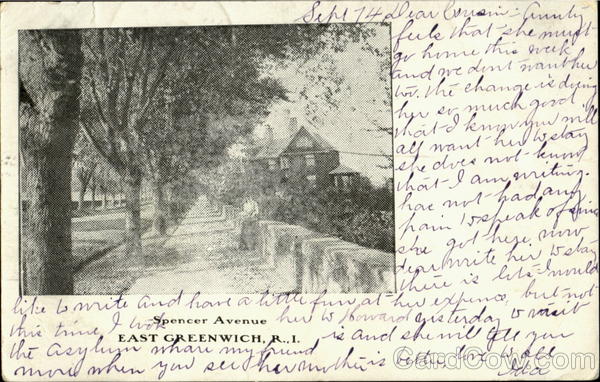 Sept 14 Dear Cousin:- Aunty
feels that she must
go home this week
and we dont want her
to. the change is doing
her so much good.
that I know you will
all want her to stay
she does not know
that I am writing.
has not had any
pain to speak of since
she got here, now
dear write her to stay
there is lots I would
like to write and have a little fun at her expence, but not
this time I took her to Howard yesterday to visit
the Asylum where my friend is and she will tell you
more when you see her mother is love to all
Spencer Avenue
EAST GREENWICH, R. I.
CardCow.com